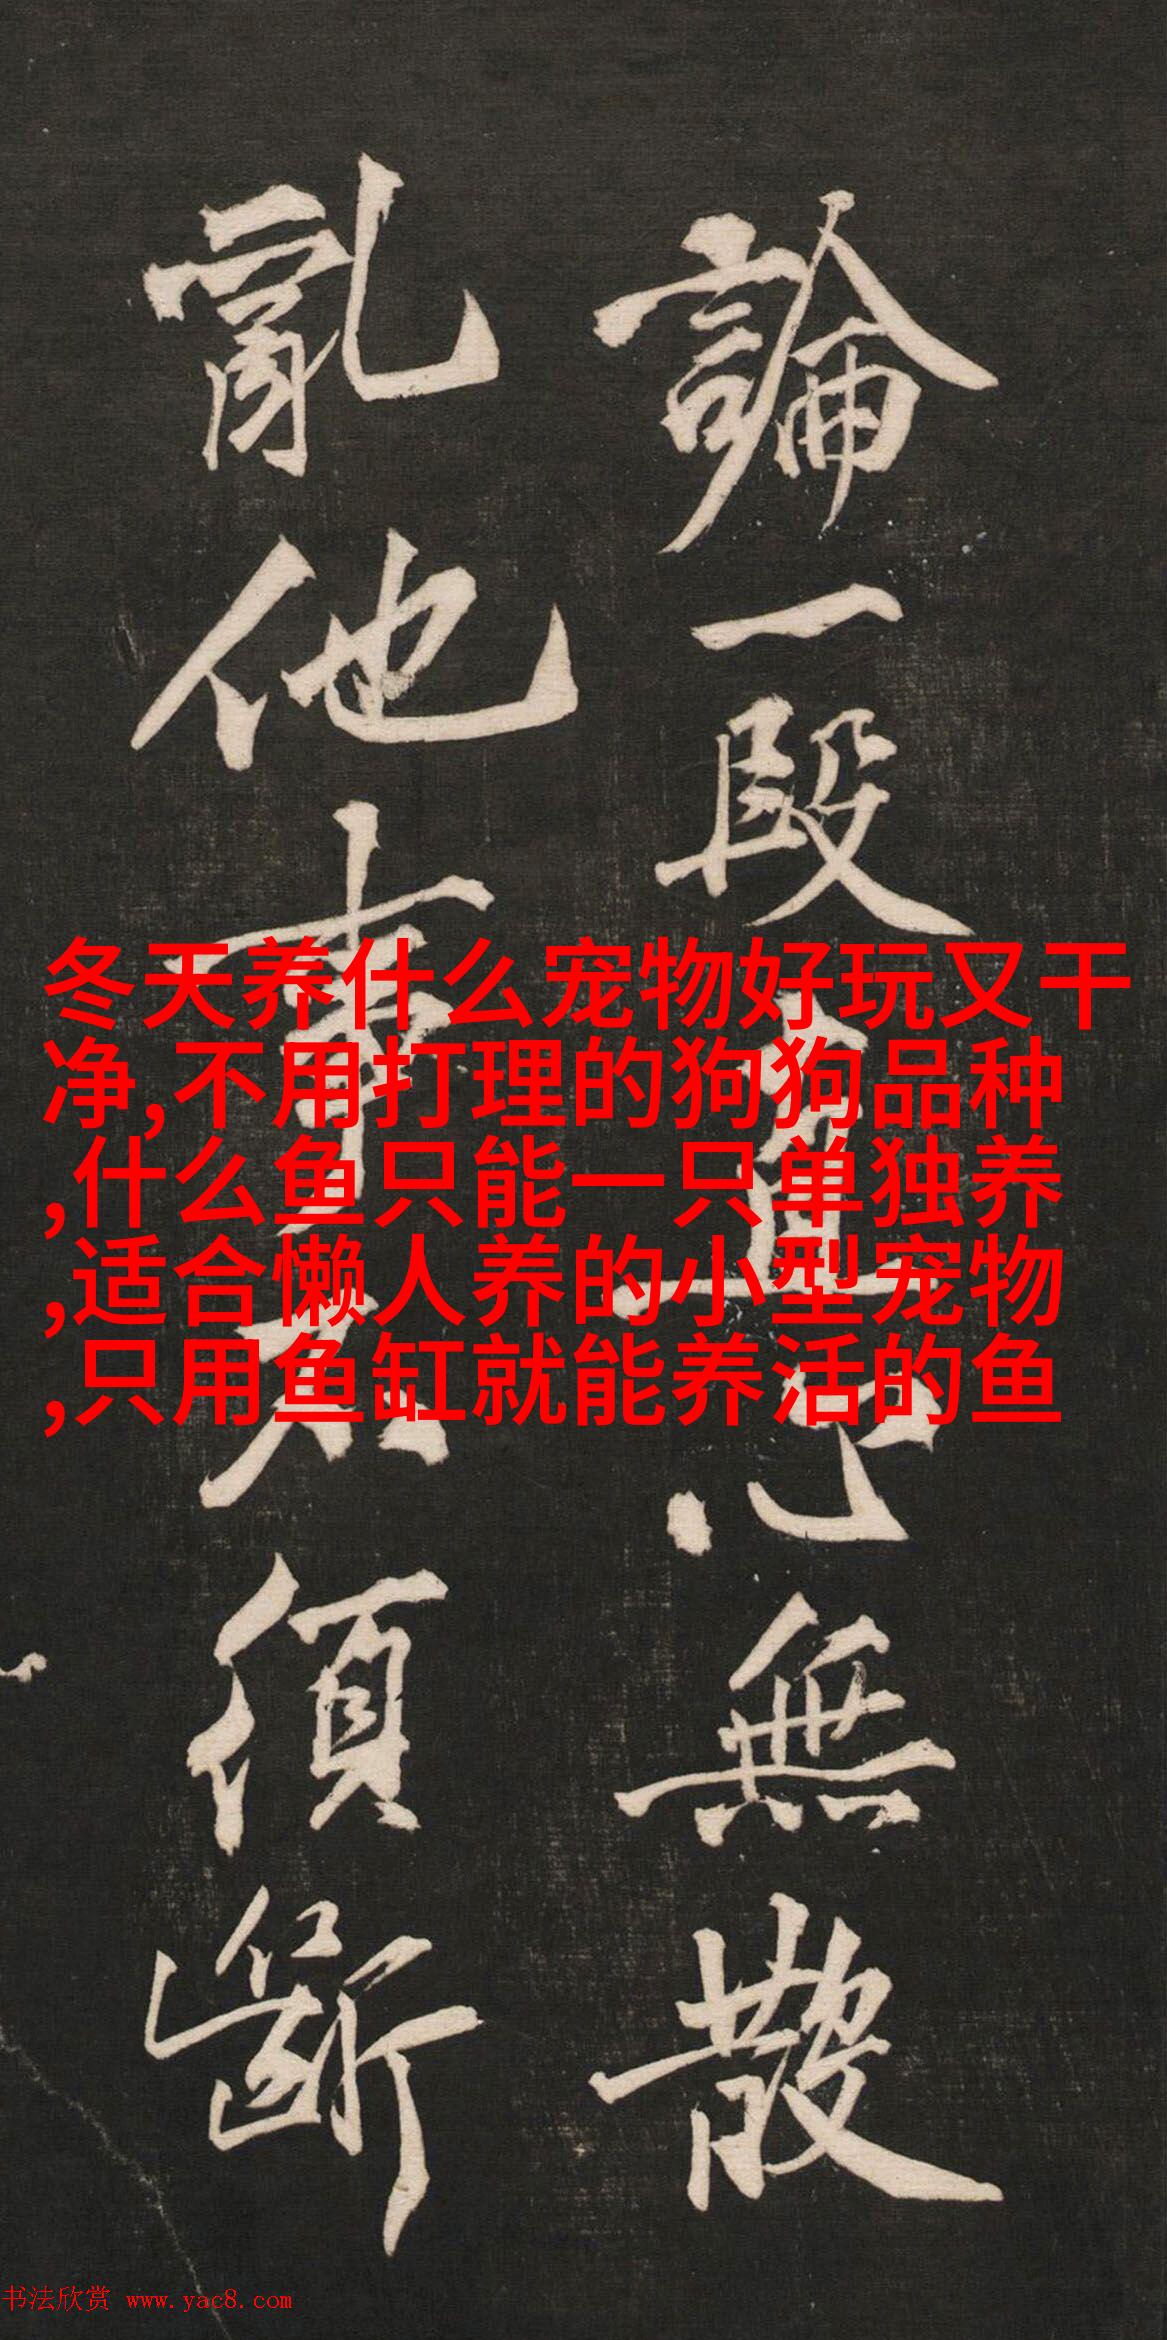 論一段真心無散
亂他事不須斷
冬天养什么宠物好玩又干
净,不用打理的狗狗品种
,什么鱼只能一只单独养
,适合懒人养的小型宠物
,只用鱼缸就能养活的鱼
书法欣赏 www.yac8.com